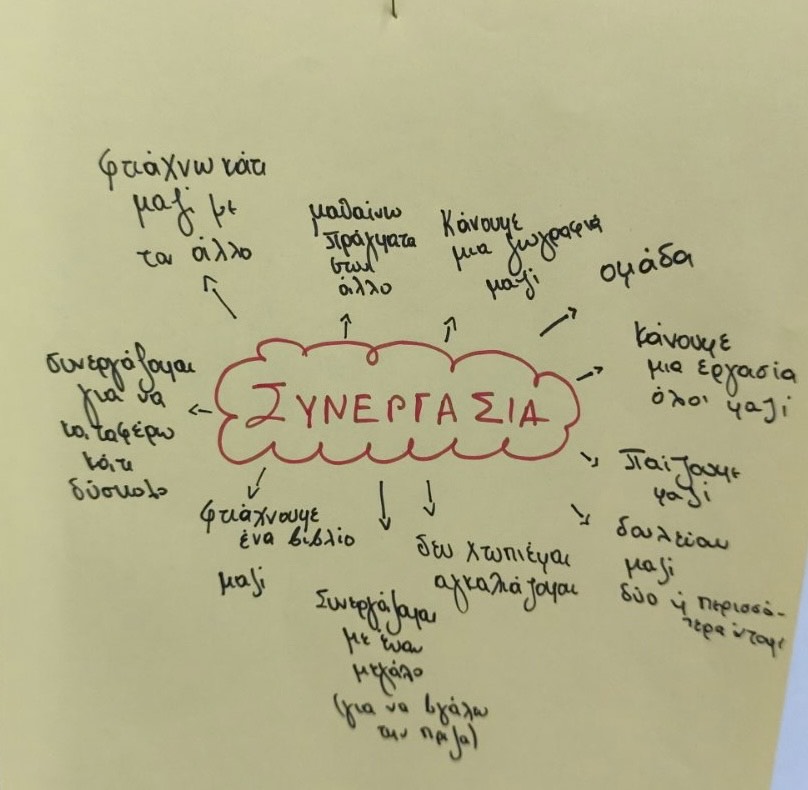 φτιάχνω κάτι
μαζί με
τον άλλο
μαθαίνω
πράγματα
στον
άλλο
Κάνουμε
μια ζωγραφιά
μαζί
ομάδα
κάνουμε
μια εργασία
όλοι μαζί
ΣΥΝΕΡΓΑΣΙΑ
συνεργάζομαι
για να
καταφέρω
κάτι
δύσκολο
Παίζουμε
μαζί
φτιάχνουμε
ένα βιβλίο
μαζί
δεν χτυπιέμαι
αγκαλιάζομαι
μαζί
δύο ή περισσό-
Συνεργάζομαι
με έναν
μεγάλο
(για να βγάλω
την πρίζα)